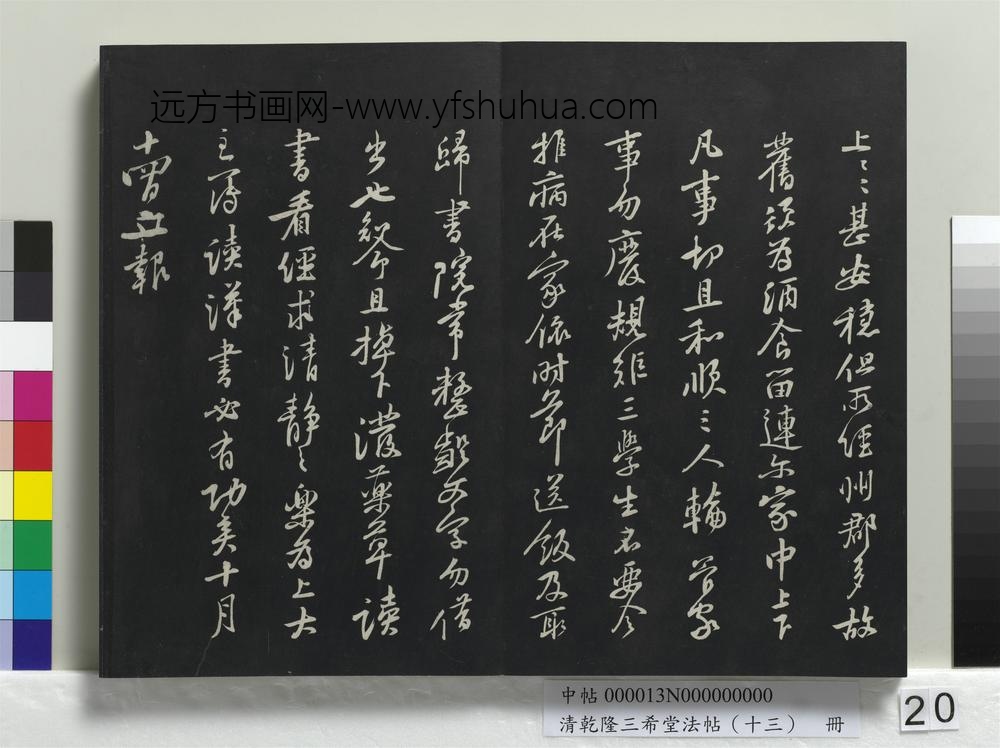 远方书画网-www.yfshuhua.com
上々甚安穩但所經州郡多故
舊須為酒食留連尔家中上下
凡事切且和順三人輪管家
事勿廢規矩三學生名要令
推病在家依時節送飯及取
歸書院常整齪文字勿借
出也知命且掉下潑藥草讀
書看經求清靜之樂為上大
主簿讀漢書必有功矣十月
十四日報
中帖 000013N000000000
清乾隆三希堂法帖（十三） 冊
20